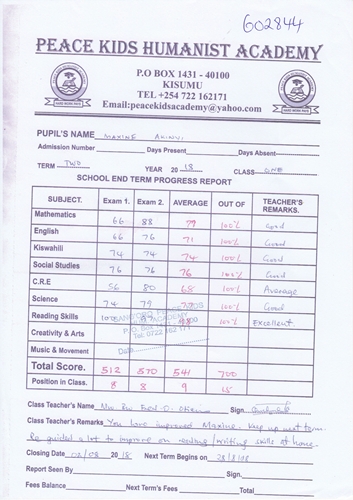 602844
PEACE KIDS HUMANIST ACADEMY
P.O BOX 1431 - 40100
KISUMU
TEL +254 722 162171
Email:peacekidsacademy@yahoo.com
PUPIL'S NAME MAXINE AKINYI
Admission Number Days Present Days Absent
TERM TWO YEAR 20 18 CLASS ONE
SCHOOL END TERM PROGRESS REPORT
SUBJECT. Exam 1. Exam 2. AVERAGE OUT OF TEACHER'S REMARKS.
Mathematics 66 88 100% Good
English 66 76 71 100% Good
Kiswahili 74 74 74 100% Good
Social Studies 76 76 76 100% Good
C.R.E 56 80 68 100% Average
Science 74 79 100% Good
Reading Skills 100 97 100% Excellent
ACADEMY
P.O. Box
Tel: 0722 162 171
Date
Creativity & Arts
Music & Movement
Total Score. 512 570 541 700
Position in Class. 8 8 9 15
Class Teacher's Name Sign.
Class Teacher's Remarks You have improved Maxine. Keep up next term.
Be guided a lot to improve on reading/writing skills at home.
Closing Date 02/08 20 18 Next Term Begins on 28/8/18
Report Seen By Sign.
Total
Fees Balance Next Term's Fees Total